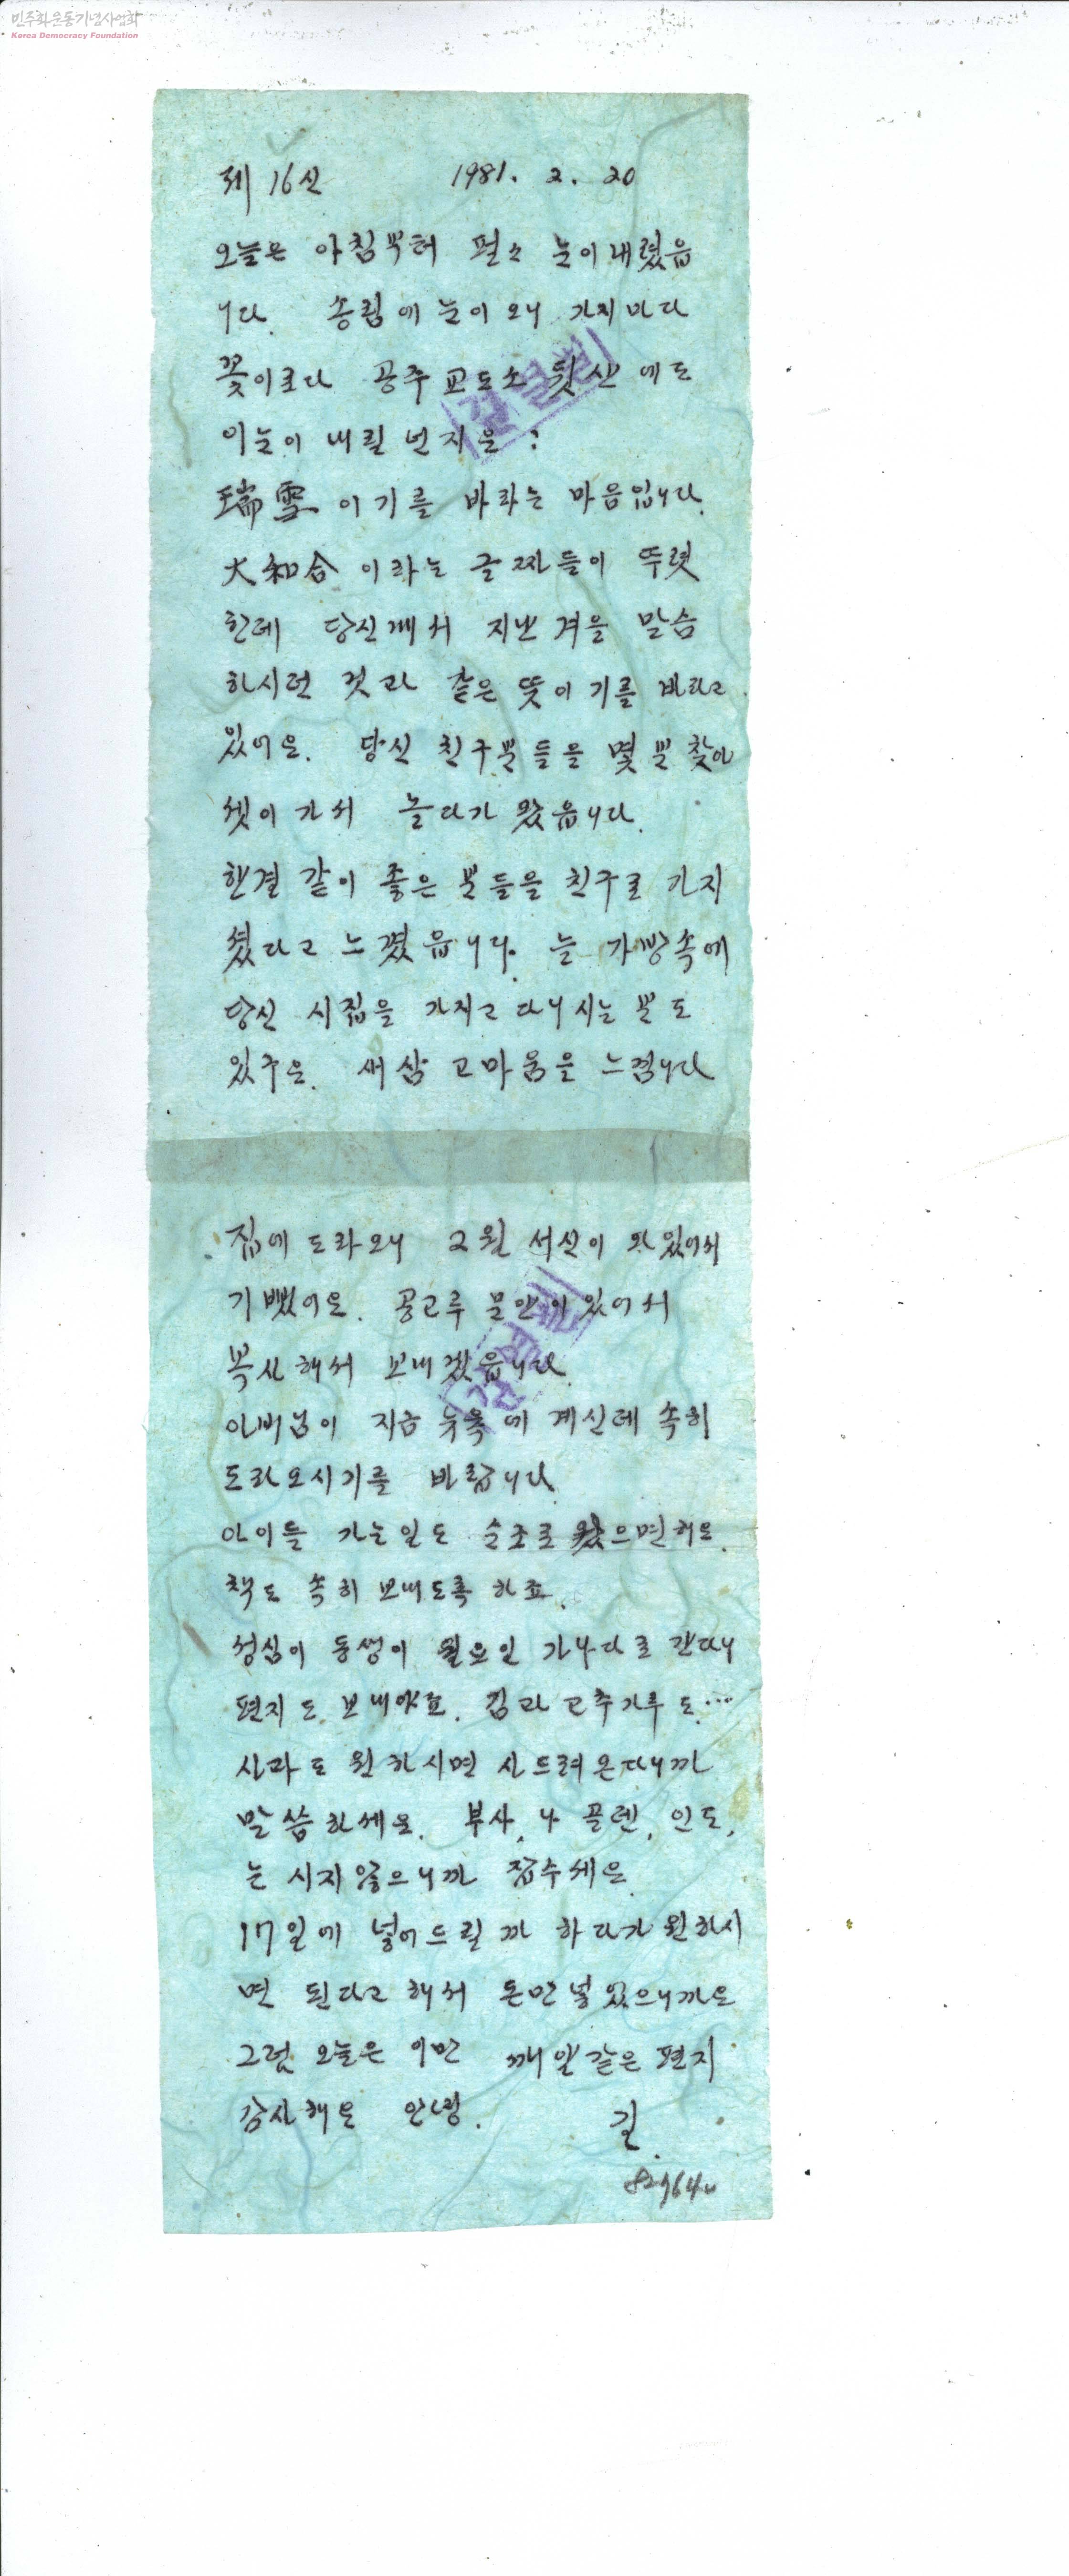 민주화운동기념사업회
Korea Democracy Foundation
제 16신 1981. 2. 20
오늘은 아침부터 펄々 눈이 내렸읍
니다. 송림에 눈이 오니 가지마다
꽃이로다 공주 교도소 뒷산에도
이눈이 내릴 넌지요:
瑞雪이기를 바라는 마음입니다.
大和合이라는 글짜들이 뚜렷
한데 당신께서 지난 겨울 말슴
하시던 것과 같은 뜻이기를 바라고
있어요. 당신 친구분들을 몇분 찾아
셋이 가서 놀다가 왔읍니다.
한결 같이 좋은 분들을 친구로 가지
셨다고 느꼈읍니다. 늘 가방속에
당신 시집을 가지고 다니시는 분도
있구요. 새삼 고마움을 느낌니다
집에 도라오니 2월 서신이 와 있어서
기뻤어요. 공고루 문안이 있어서
복사해서 보내겠읍니다.
아버님이 지금 뉴욕에 계신데 속히
도라오시기를 바랍니다.
아이들 가는일도 순조로왔으면해요.
책도 속히 보내도록 하죠.
성심이 동생이 월요일 가나다로 간다니
편지도 보내야죠. 김과 고추가루도...
사과도 원하시면 사드려온다니까
말씀하세요. 부사, 나 골덴, 인도,
는 시지않으니까 잡수세요.
17일에 넣어드릴까 하다가 원하시
면 된다고 해서 돈만 넣었으니까요
그럼 오늘은 이만 깨알같은 편지
감사해요 안녕. 길.